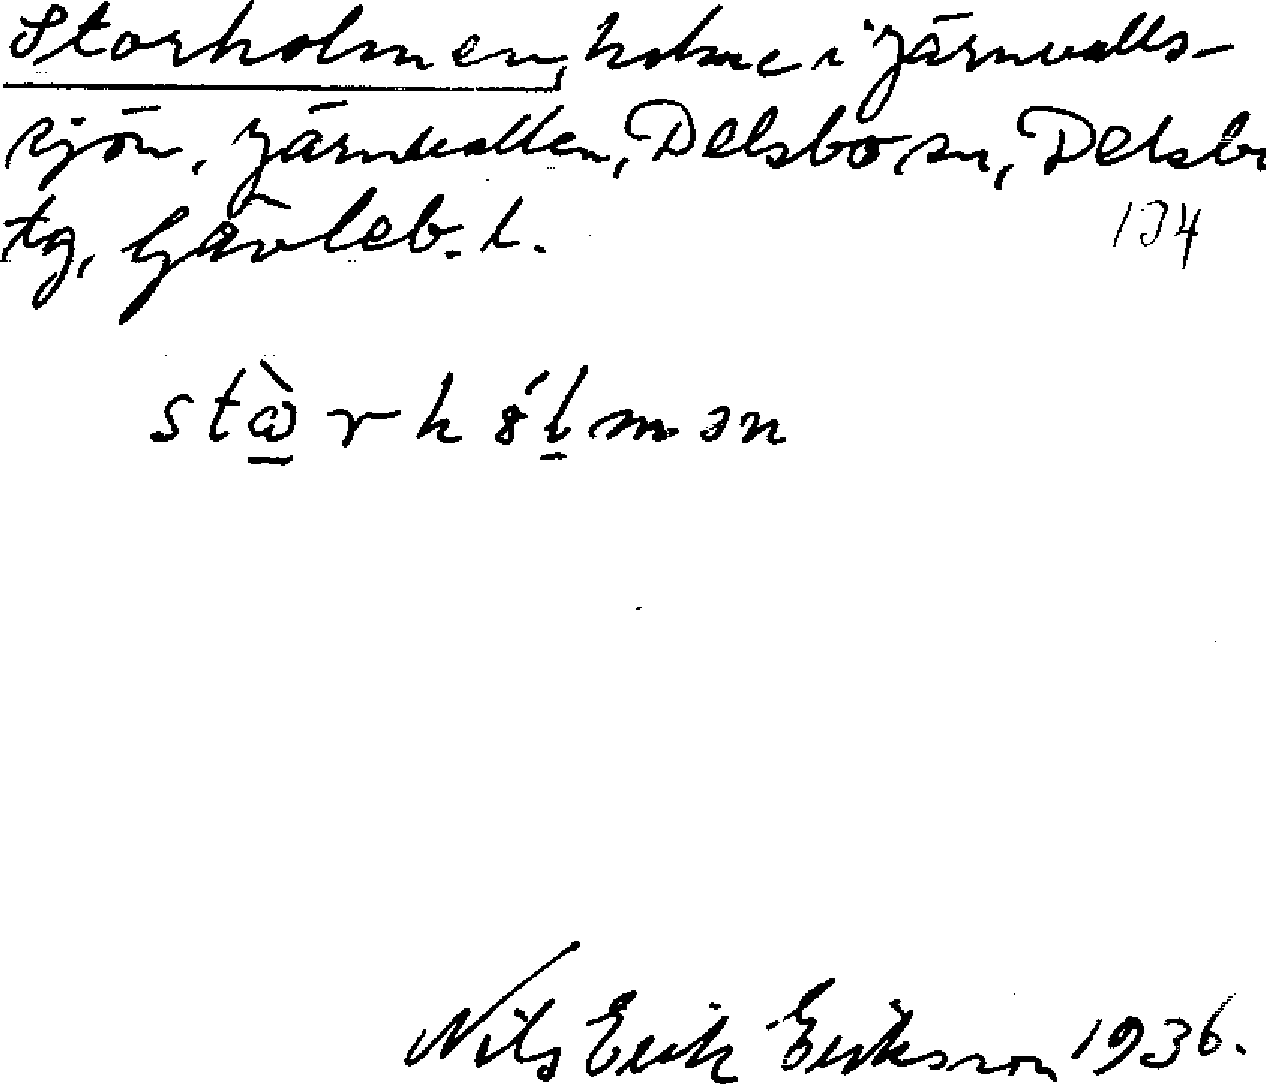 Storholmen, holme i Järnvalls-
sjön, Järnvallen, Delsbo sn, Delsbo
tg, Gävleb. l.
134
Nils Erik Eriksson 1936.